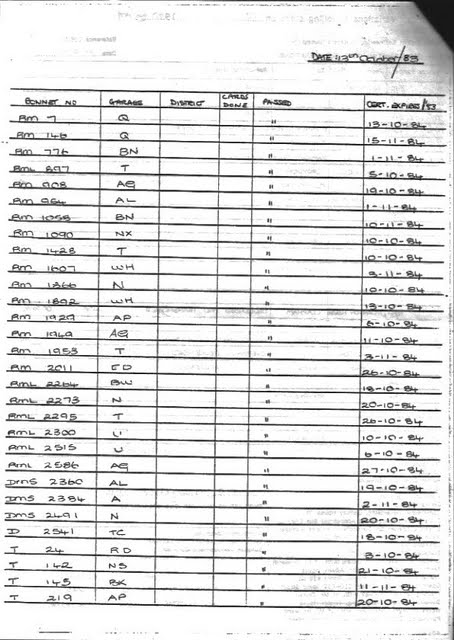 DATE: 13th October/83
BONNET NO GARAGE DISTRICT CARDS DONE PASSED CERT. EXPIRES/83
RM 7 Q " 13-10-84
RM 146 Q " 15-11-84
RM 776 BN " 1-11-84
RML 897 T " 5-10-84
RM 908 AG " 19-10-84
RM 964 AL " 1-11-84
RM 1058 BN " 10-11-84
RM 1090 NX " 10-10-84
RM 1428 T " 10-10-84
RM 1607 WH " 9-11-84
RM 1866 N " 10-10-84
RM 1892 WH " 13-10-84
RM 1929 AP " 6-10-84
RM 1949 AG " 11-10-84
RM 1953 T " 3-11-84
RM 2011 ED " 26-10-84
RML 2264 BW " 18-10-84
RML 2273 N " 20-10-84
RML 2295 T " 26-10-84
RML 2300 U " 10-10-84
RML 2515 U " 6-10-84
RML 2586 AG " 27-10-84
DMS 2360 AL " 19-10-84
DMS 2384 A " 2-11-84
DMS 2491 N " 20-10-84
D 2541 TC " 18-10-84
T 24 RD " 3-10-84
T 142 NS " 21-10-84
T 145 BK " 11-11-84
T 219 AP " 20-10-84